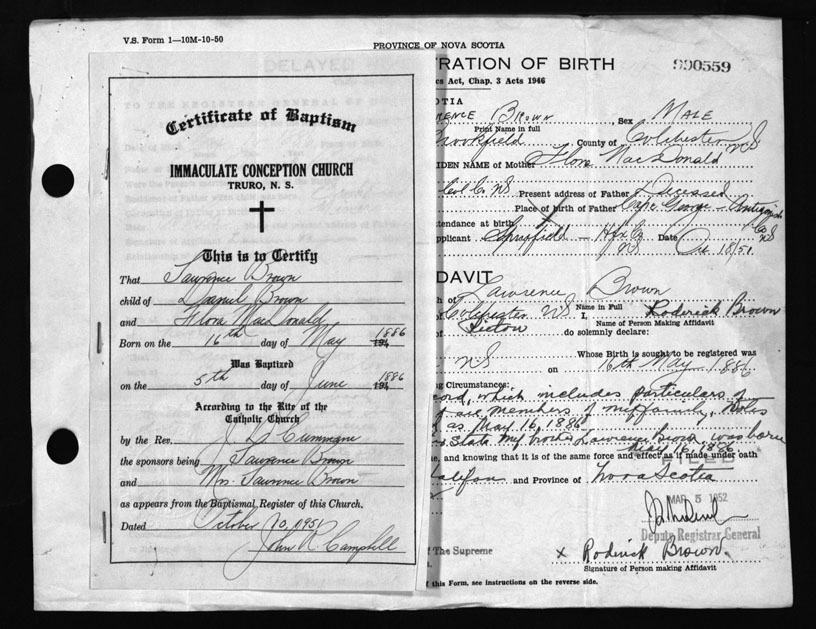 V.S. Form 1—10M-10-50
PROVINCE OF NOVA SCOTIA
DELAYED
Certificate of Baptism
IMMACULATE CONCEPTION CHURCH
TRURO, N. S.
This is to Certify
That Lawrence Brown
child of Daniel Brown
and Flora MacDonald
Born on the 16th day of May 1886 194
Was Baptized
on the 5th day of June 1886 194
According to the Rite of the
Catholic Church
by the Rev.
the sponsors being Lawrence Brown
and Mrs. Lawrence Brown
as appears from the Baptismal Register of this Church.
Dated October 10, 1951
John R. Campbell
TRATION OF BIRTH
990559
cs Act, Chap. 3 Acts 1946
OTIA
RENCE BROWN Sex MALE
Print Name in full
rookfield County of Colchester NS
IDEN NAME of Mother Flora MacDonald
Col. Co. NS Present address of Father Deceased
Place of birth of Father Cape George - Antigonish Co NS
ttendance at birth
pplicant Hfx Co NS Date Oct 18/51
DAVIT
h of Lawrence Brown
Name in Full
Colchester NS I, Roderick Brown
Name of Person Making Affidavit
of Pictou do solemnly declare:
Whose Birth is sought to be registered was
NS on 16th May 1886
ng Circumstances:
cord, which includes particulars of
of six members of my family, notes
as May 16, 1886
State my brother Lawrence Brown was born
May 16, 1886
e, and knowing that it is of the same force and effect as if made under oath
FILED
alifax and Province of Nova Scotia
MAR 5 1952
Deputy Registrar General
f The Supreme x Roderick Brown
Signature of Person making Affidavit
f this Form, see instructions on the reverse side.